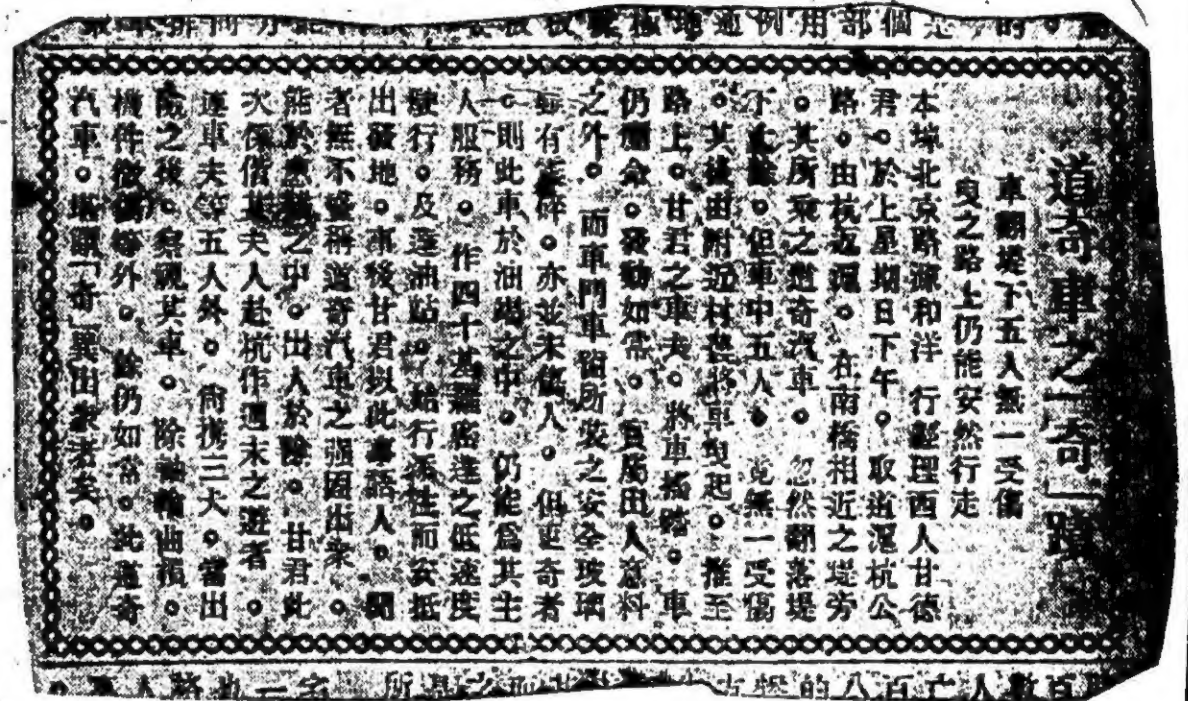 道奇車之「奇」蹟
車翻堤下五人無一受傷
曳之路上仍能安然行走
本埠北京路 和洋行經理西人甘德
君。於上星期日下午。取道滬杭公
路。由杭返滬。在南橋相近之堤旁
。其所乘之道奇汽車。忽然翻落堤
下 。但車中五人。竟無一受傷
。其後由附近村 將車曳起。推至
路上。甘君之車夫。將車 。車
仍 命。發動如常。 屬出人意料
之外。而車門車窗所裝之安全玻璃
有 碎。亦並未傷人。但更奇者
。則此車於油 之中。仍能爲其主
人服務。作四十基羅密達之低速度
駛行。及達油站。 行 而安抵
出發地。事後甘君以此事語人。聞
者無不盛稱道奇汽車之强固出衆。
能於 之中。出人於險。甘君此
次係偕其夫人赴杭作週末之遊者。
連車夫等五人外。尚携三犬。當出
險之後。察視其車。除 輪曲損。
機件微 等外。餘仍如常。此道奇
汽車。堪 「奇」異出衆者矣。